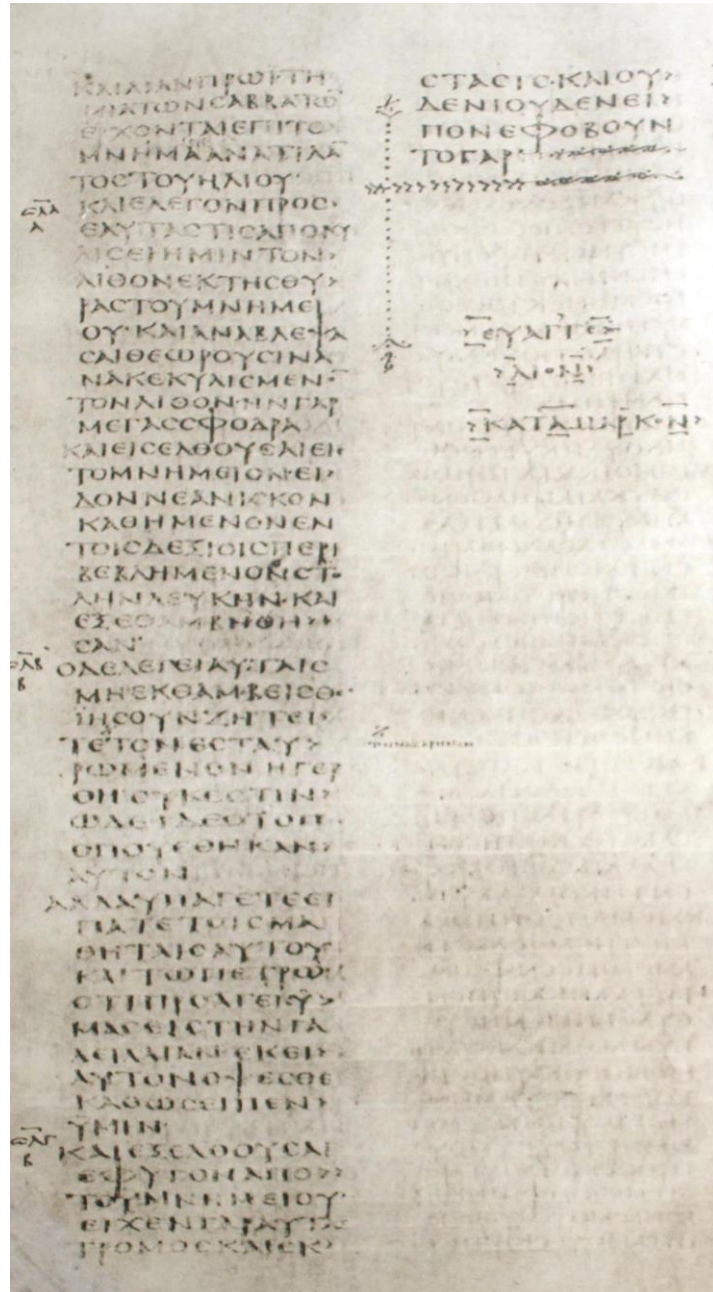 ΚΑΙΛΙΑΝΠΡΩΪΤΗ
ΜΙΑΤΩΝϹΑΒΒΑΤΩ
ΕΡΧΟΝΤΑΙΕΠΙΤΟ
ΜΝΗΜΑΑΝΑΤΙΛΑ
ΤΟϹΤΟΥΗΛΙΟΥ·
ϹΛΑ Α
ΚΑΙΕΛΕΓΟΝΠΡΟϹ
ΕΑΥΤΑϹΤΙϹΑΠΟΚΥ
ΛΙϹΕΙΗΜΙΝΤΟΝ>
ΛΙΘΟΝΕΚΤΗϹΘΥ>
ΡΑϹΤΟΥΜΝΗΜΕΙ
ΟΥ·ΚΑΙΑΝΑΒΛΕΨΑ
ϹΑΙΘΕΩΡΟΥϹΙΝΑ
ΝΑΚΕΚΥΛΙϹΜΕΝΟ
ΤΟΝΛΙΘΟΝ·ΗΝΓΑΡ
ΜΕΓΑϹϹΦΟΔΡΑ
ΚΑΙΕΙϹΕΛΘΟΥϹΑΙΕΙϹ
ΤΟΜΝΗΜΕΙΟΝΕΙ>
ΔΟΝΝΕΑΝΙϹΚΟΝ
ΚΑΘΗΜΕΝΟΝΕΝ
ΤΟΙϹΔΕΞΙΟΙϹΠΕΡΙ
ΒΕΒΛΗΜΕΝΟΝϹΤΟ
ΛΗΝΛΕΥΚΗΝ·ΚΑΙ
ΕΞΕΘΑΜΒΗΘΗ>>
ϹΑΝ
ϹΛΒ Β
ΟΔΕΛΕΓΕΙΑΥΤΑΙϹ
ΜΗΕΚΘΑΜΒΕΙϹΘΕ
ΙΗϹΟΥΝΖΗΤΕΙ>
ΤΕΤΟΝΕϹΤΑΥ>
ΡΩΜΕΝΟΝΗΓΕΡ
ΘΗΟΥΚΕϹΤΙΝ>
ΩΔΕΙΔΕΟΤΟΠΟϹ
ΟΠΟΥΕΘΗΚΑΝ>
ΑΥΤΟΝ
ΑΛΛΑΥΠΑΓΕΤΕΕΙ
ΠΑΤΕΤΟΙϹΜΑ
ΘΗΤΑΙϹΑΥΤΟΥ
ΚΑΙΤΩΠΕΤΡΩ
ΟΤΙΠΡΟΑΓΕΙΫ>
ΜΑϹΕΙϹΤΗΝΓΑ
ΛΕΙΛΑΙΑΝΕΚΕΙ
ΑΥΤΟΝΟΨΕϹΘΕ
ΚΑΘΩϹΕΙΠΕΝ>
ΥΜΙΝ
ϹΛΓ Β
ΚΑΙΕΞΕΛΘΟΥϹΑΙ
ΕΦΥΓΟΝΑΠΟ>>
ΤΟΥΜΝΗΜΕΙΟΥ·
ΕΙΧΕΝΓΑΡΑΥΤΑϹ
ΤΡΟΜΟϹΚΑΙΕΚ>
ϹΤΑϹΙϹ·ΚΑΙΟΥ>
ΔΕΝΙΟΥΔΕΝΕΙ>
ΠΟΝΕΦΟΒΟΥΝ
ΤΟΓΑΡ·
ΕΥΑΓΓΕ
ΛΙΟΝ
ΚΑΤΑΜΑΡΚΟΝ